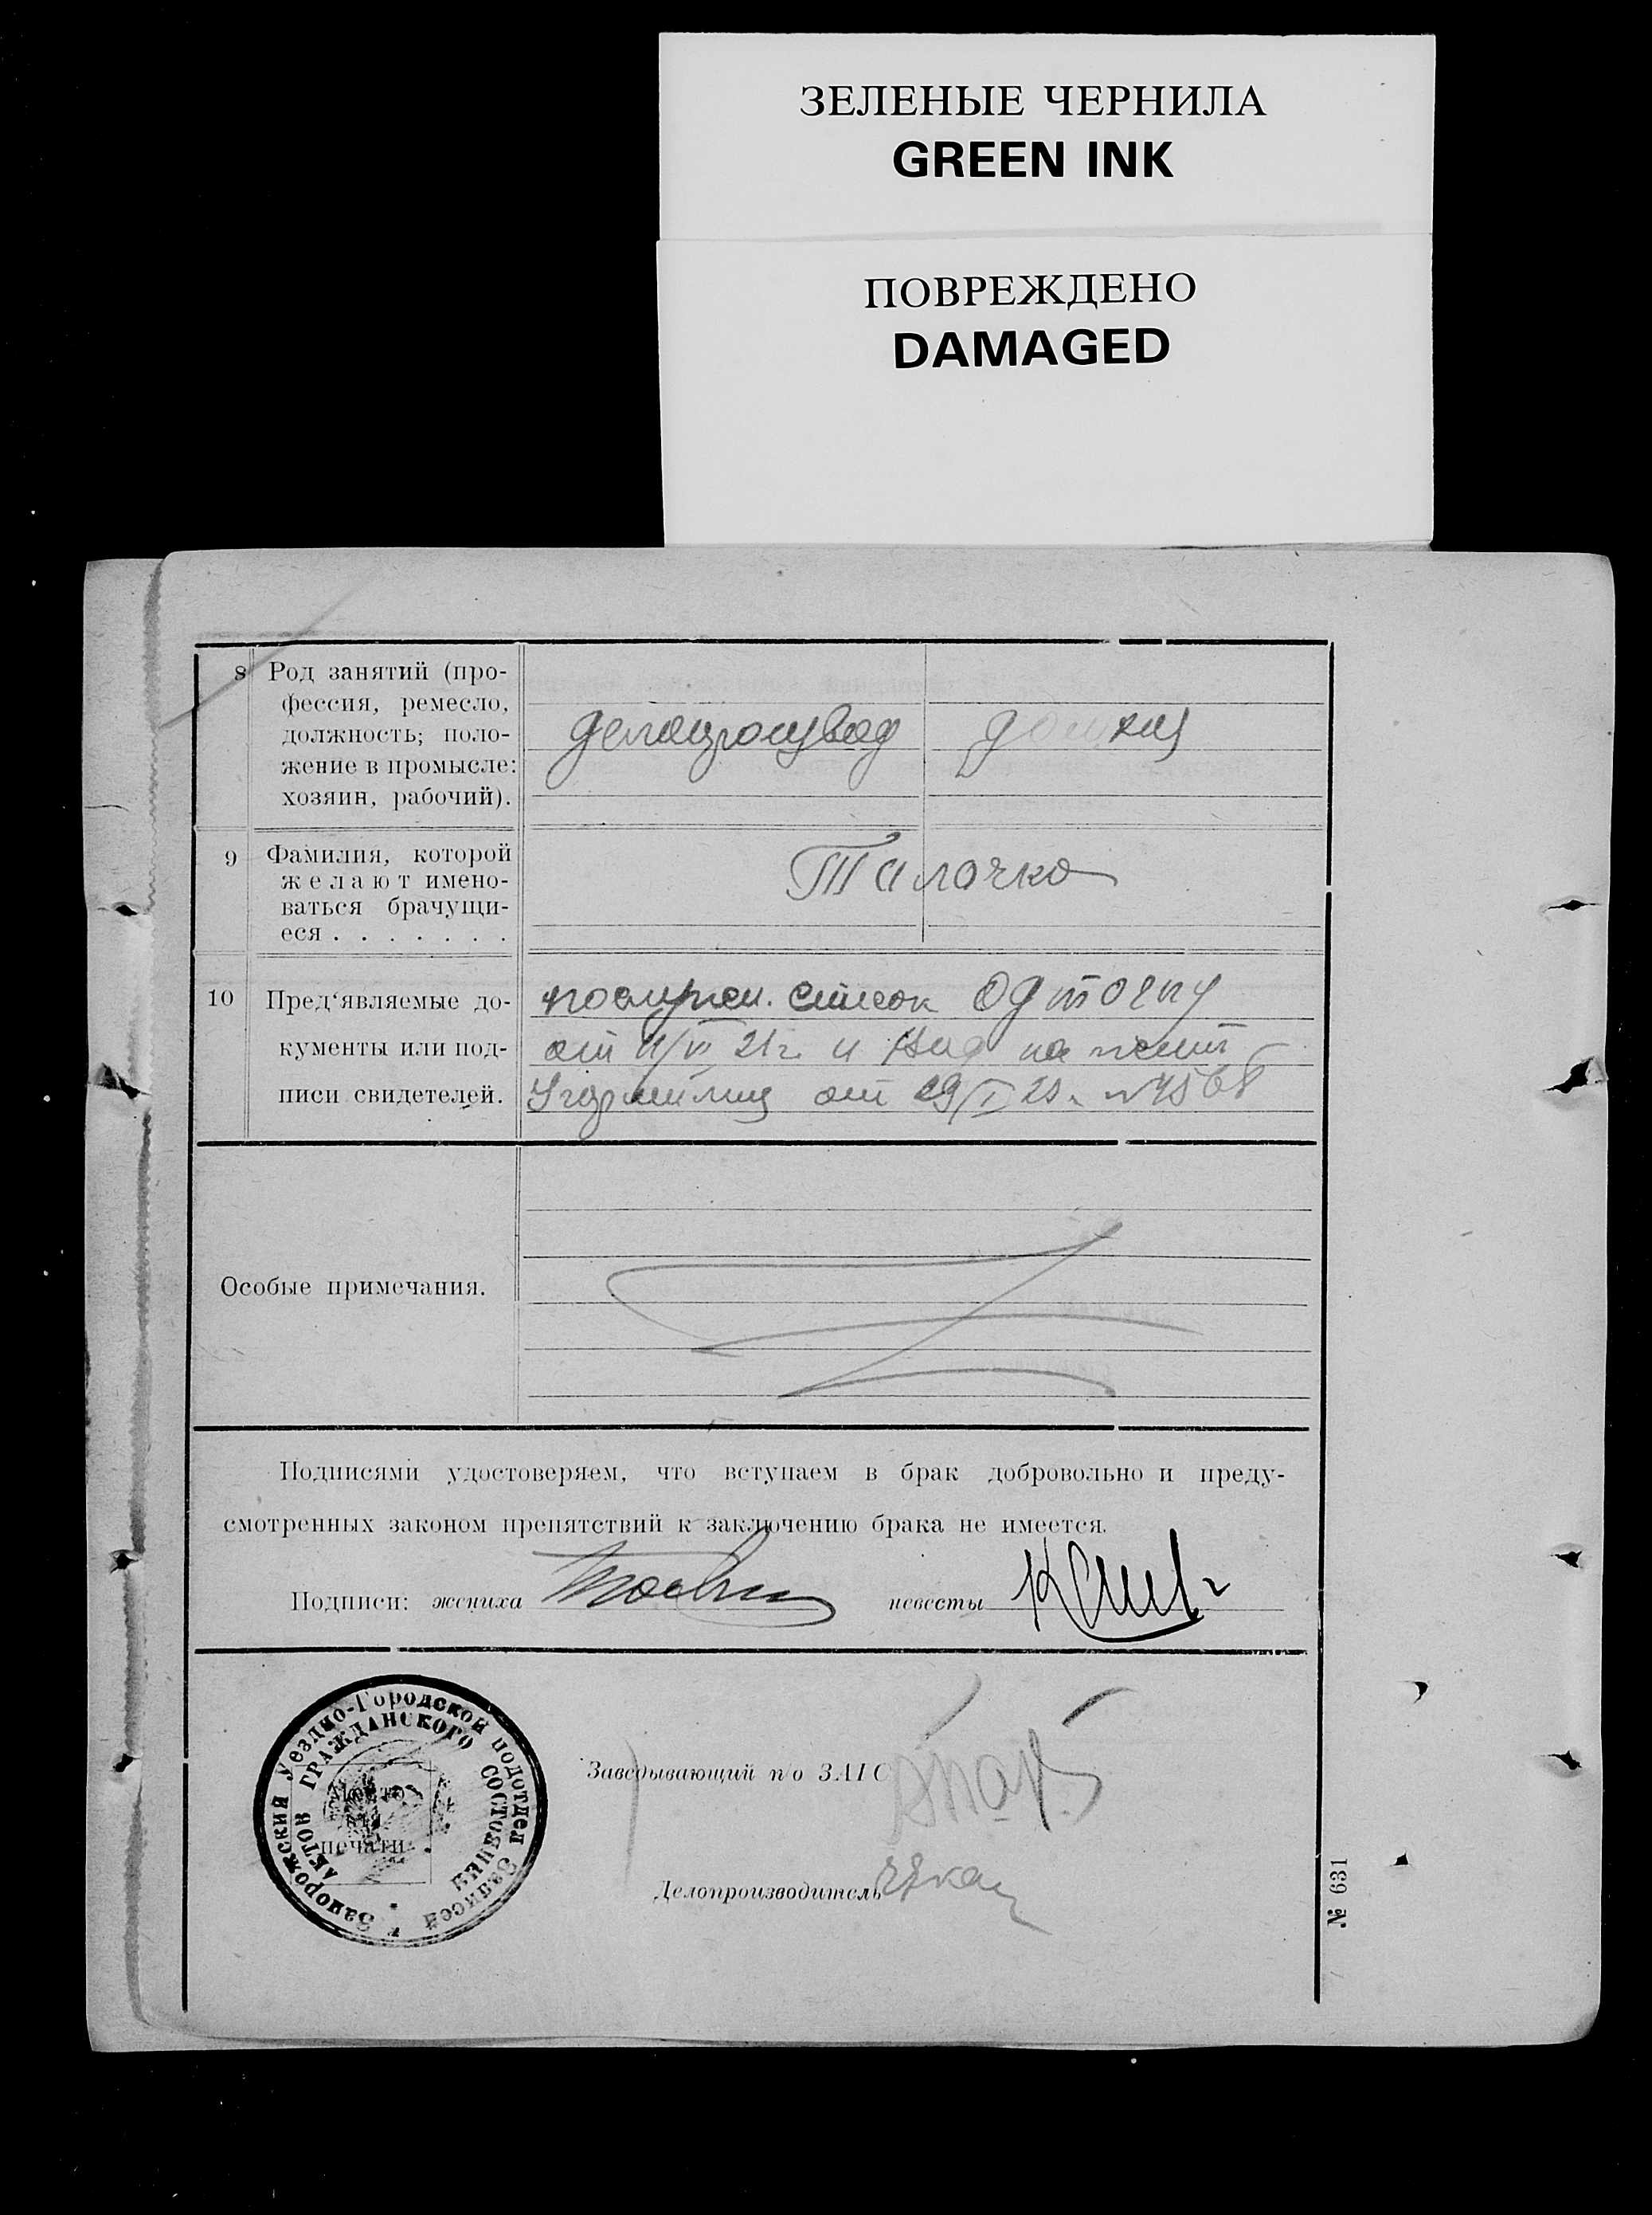 ЗЕЛЕНЫЕ ЧЕРНИЛА
GREEN INK
ПОВРЕЖДЕНО
DAMAGED
8 Род занятий (про-
фессия, ремесло,
должность; поло-
жение в промысле:
хозяин, рабочий).
9 Фамилия, которой
желают имено-
ваться брачущи-
еся . . . . . . .
Талочко
10 Пред‘являемые до-
кументы или под-
писи свидетелей.
список
от 21 г. и вид на
от 29/I 21 г. №
Особые примечания.
Подписями удостоверяем, что вступаем в брак добровольно и преду-
смотренных законом препятствий к заключению брака не имеется.
Подписи: жениха невесты
Запорожский Уездно-Городской подотдел Записей
АКТОВ ГРАЖДАНСКОГО СОСТОЯНИЯ
Место
для
печати
Заведывающий п/о ЗАГС
Делопроизводитель
№ 631